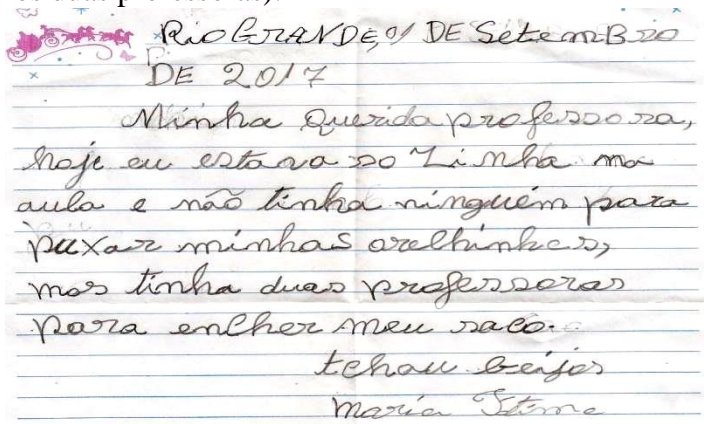 RioGRANDE, 01 DE SetemBro
DE 2017
Minha querida professora,
hoje eu estava soLinha na
aula e não tinha ninguém para
puxar minhas orelhinhas,
mas tinha duas professoras
para encher meu saco.
tchau beijos
maria